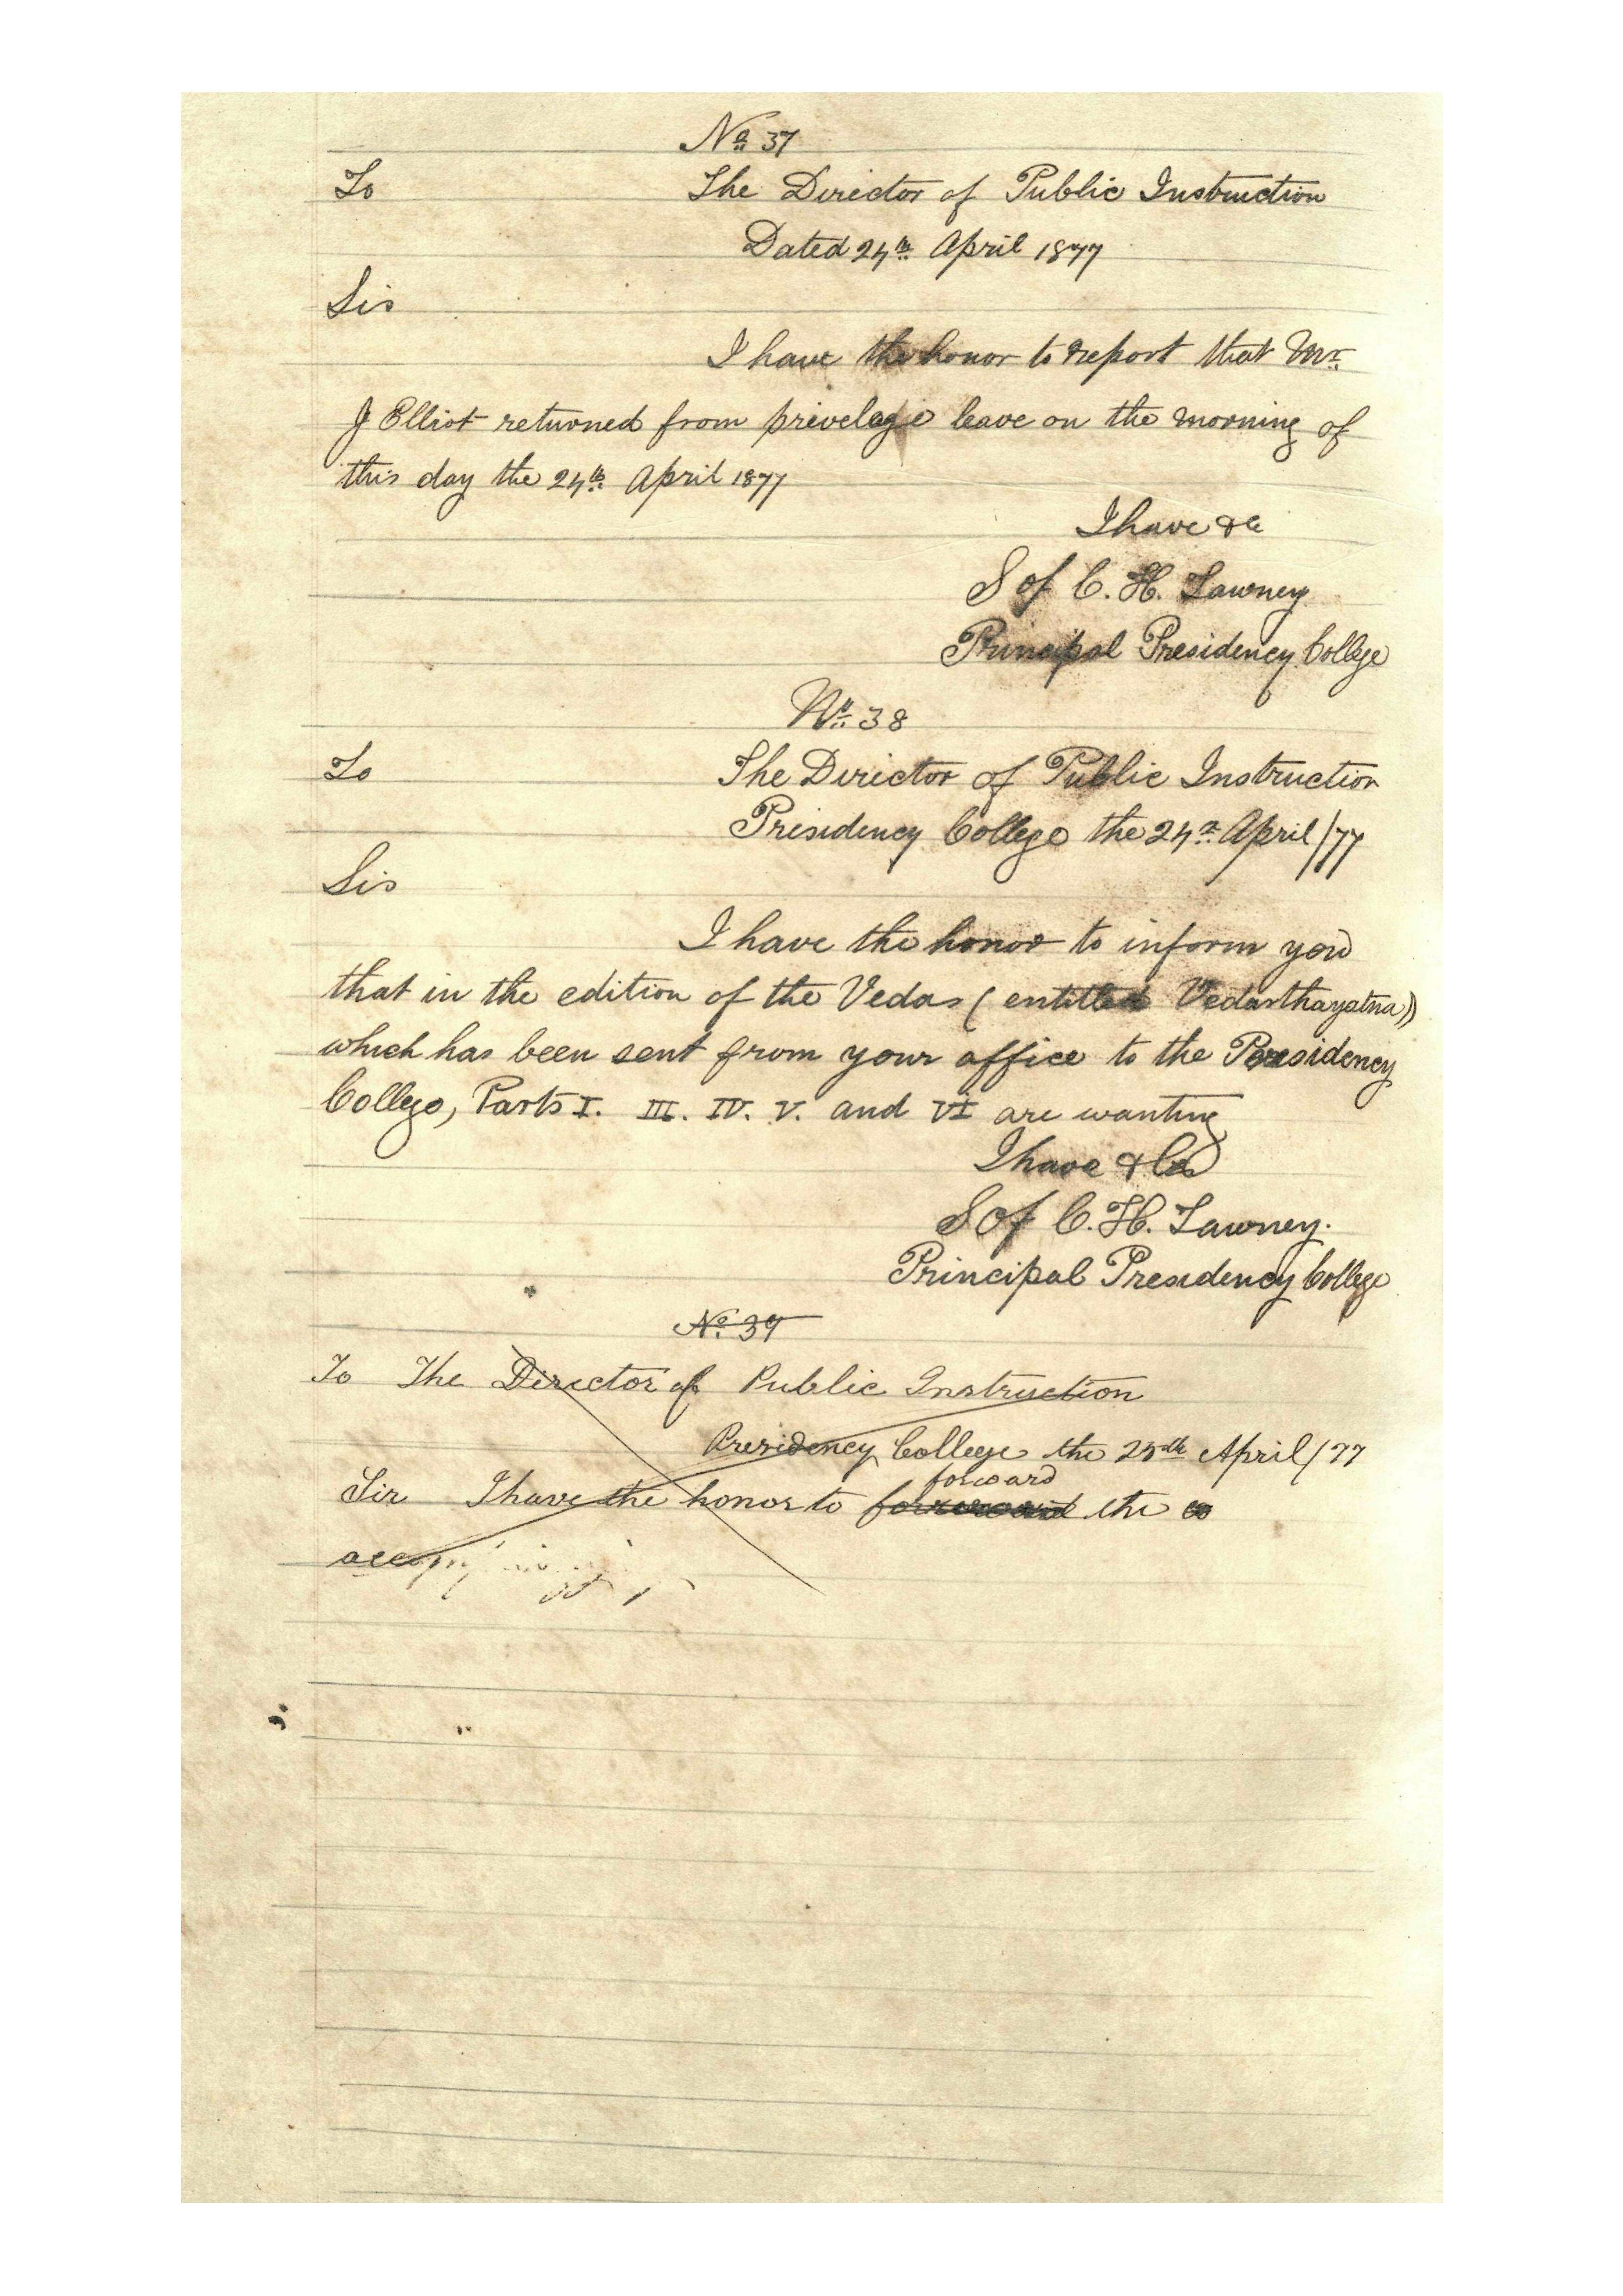 No 37
To The Director of Public Instruction
Dated 24th April 1877
Sir
I have the honor to report that Mr
J Elliot returned from privelage leave on the morning of
this day the 24th April 1877
I have &c
S of C. H. Tawney
Principal Presidency College
No 38
To The Director of Public Instruction
Presidency College the 24th April/77
Sir
I have the honor to inform you
that in the edition of the Vedas (entitled Vedarthayatna)
which has been sent from your office to the Presidency
College, Parts I. III. IV. V. and VI are wanting
I have &c
S of C. H. Tawney.
Principal Presidency College
No. 39
To The Director of Public Instruction
Presidency College the 25th April/77
forward
Sir I have the honor to forward the